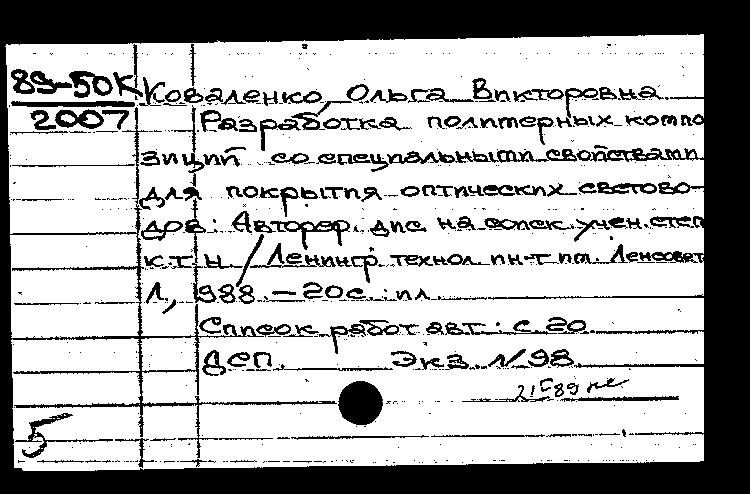 89-50К Коваленко, Ольга Викторовна
2007 Разработка полимерных компо
зиций со специальными свойствами
для покрытия оптических светово-
дов: Автореф. дис. на соиск. учен. степ
к.т.н. / Ленингр. технол. ин-т им. Ленсовет
Л., 1988. - 20 с.: ил.
Список работ авт.: с. 20.
ДСП. Экз. N 98
5